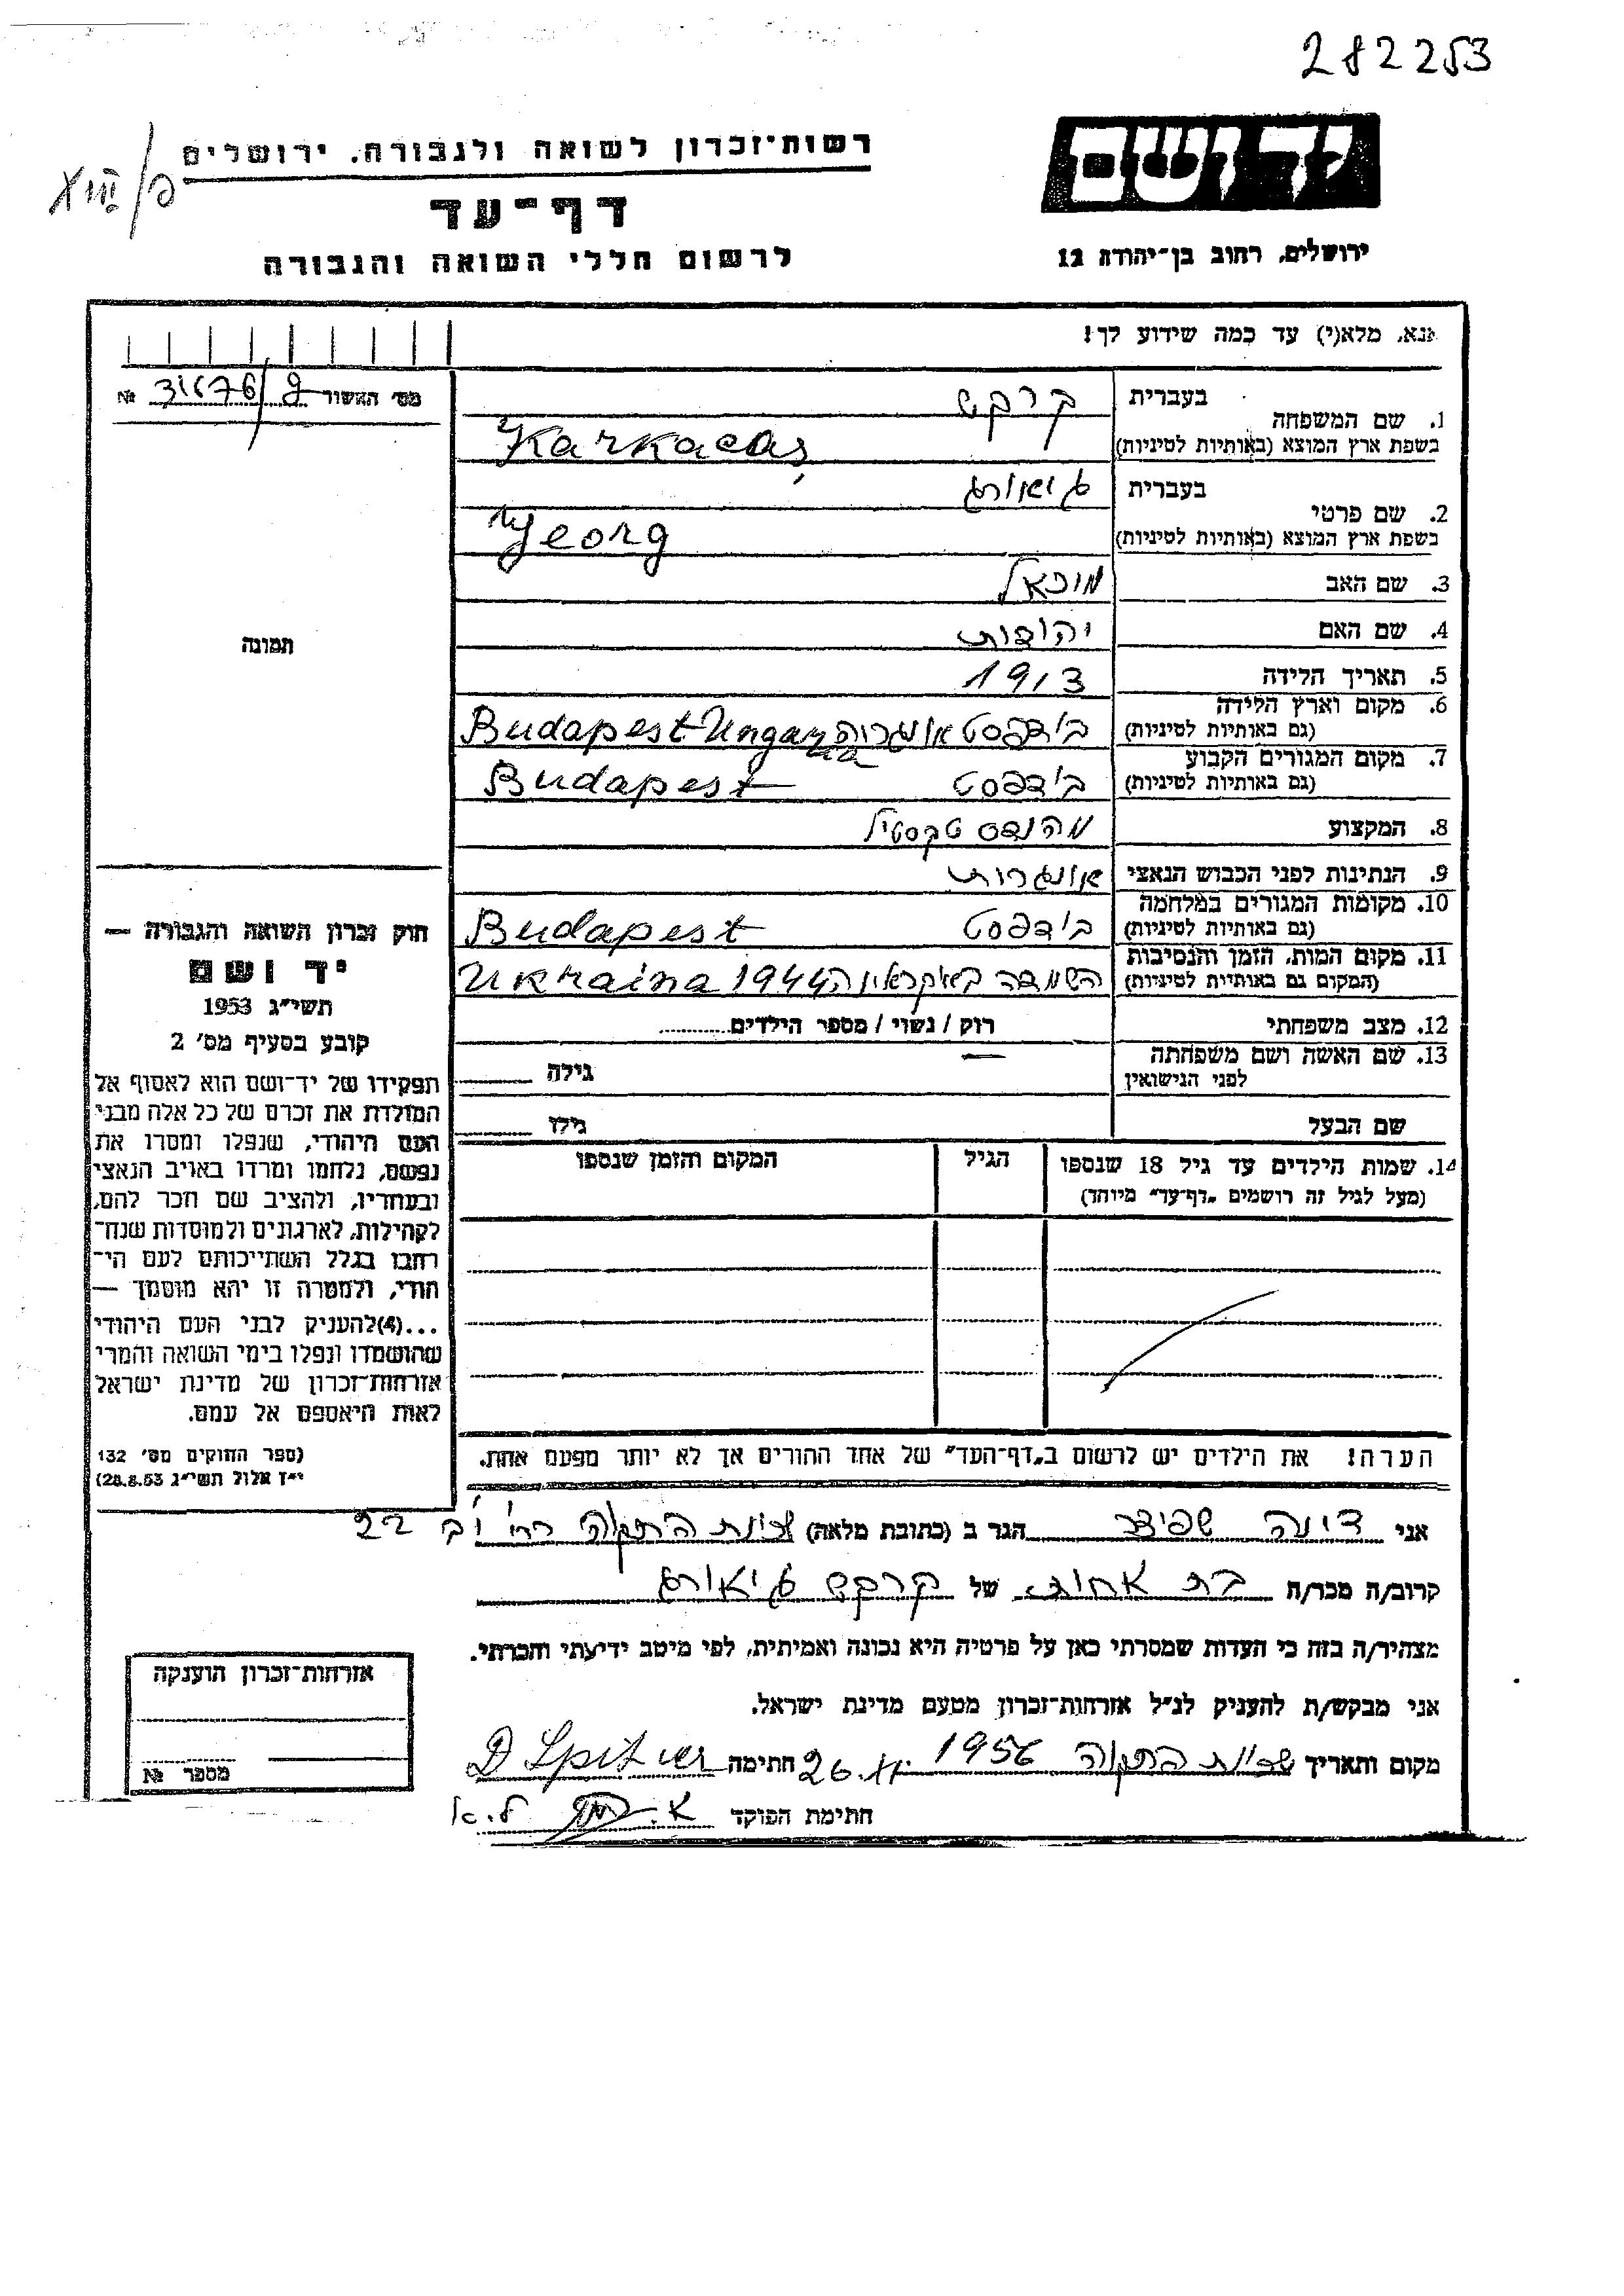 282253
יד ושם
רשות־זכרון לשואה ולגבורה, ירושלים
דף־עד
לרשום חללי השואה והגבורה
ירושלים, רחוב בן־יהודה 12
אנא, מלא(י) עד כמה שידוע לך!
מס׳ האשור №
1. שם המשפחה בעברית קרקש
בשפת ארץ המוצא (באותיות לטיניות) Karkacaș
2. שם פרטי בעברית גיאורג
בשפת ארץ המוצא (באותיות לטיניות) Georg
3. שם האב מיכאל
4. שם האם יהודית
5. תאריך הלידה 1913
6. מקום וארץ הלידה (גם באותיות לטיניות) בודפסט אונגריה Budapest
7. מקום המגורים הקבוע (גם באותיות לטיניות) בודפסט Budapest
8. המקצוע מהנדס טקסטיל
9. הנתינות לפני הכבוש הנאצי אונגרית
10. מקומות המגורים במלחמה (גם באותיות לטיניות) בודפסט Budapest
11. מקום המות, הזמן והנסיבות (המקום גם באותיות לטיניות) השמדה באוקראינה 1944 Ukraina
12. מצב משפחתי רוק / נשוי / מספר הילדים
13. שם האשה ושם משפחתה לפני הנישואין גילה
שם הבעל גילו
14. שמות הילדים עד גיל 18 שנספו הגיל המקום והזמן שנספו
(מעל לגיל זה רושמים „דף־עד״ מיוחד)
תמונה
חוק זכרון השואה והגבורה —
יד ושם
תשי״ג 1953
קובע בסעיף מס׳ 2
תפקידו של יד־ושם הוא לאסוף אל
המולדת את זכרם של כל אלה מבני
העם היהודי, שנפלו ומסרו את
נפשם, נלחמו ומרדו באויב הנאצי
ובעוזריו, ולהציב שם וזכר להם,
לקהילות, לארגונים ולמוסדות שנח־
רבו בגלל השתייכותם לעם הי־
הודי, ולמטרה זו יהא מוסמך —
...(4)להעניק לבני העם היהודי
שהושמדו ונפלו בימי השואה והמרי
אזרחות־זכרון של מדינת ישראל
לאות היאספם אל עמם.
(ספר החוקים מס׳ 132
י״ז אלול תשי״ג 28.8.53)
הערה! את הילדים יש לרשום ב„דף־העד״ של אחד ההורים אך לא יותר מפעם אחת.
אני דינה שפיצר הגר ב (כתובת מלאה) שכונת התקוה רח׳ 22
קרוב/ה מכר/ה בת אחות של קרקש גיאורג
מצהיר/ה בזה כי העדות שמסרתי כאן על פרטיה היא נכונה ואמיתית, לפי מיטב ידיעתי והכרתי.
אני מבקש/ת להעניק לנ״ל אזרחות־זכרון מטעם מדינת ישראל.
מקום ותאריך שכונת התקוה 1956 חתימה D Spitzer
חתימת הפוקד
אזרחות־זכרון הוענקה
מספר №